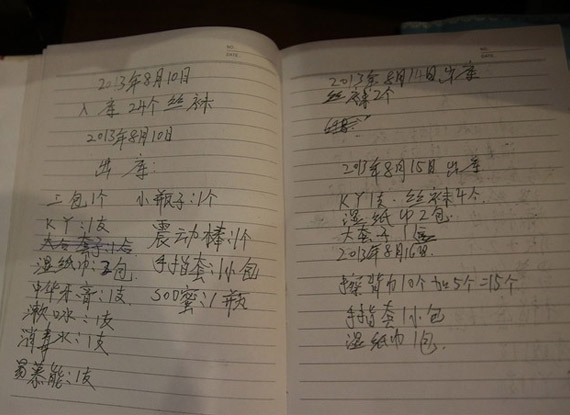 NO.
DATE.
2013年8月10日
入库 24个丝袜
2013年8月10日
出库:
上包1个 小瓶子:1个
KY:1支 震动棒:1个
湿纸巾:2包 手指套:1小包
中华牙膏:1支 SOD蜜:1瓶
漱口水:1支
消毒水:1支
曼慕能:1支
NO.
DATE.
2013年8月11日出库
丝袜2个
2013年8月15日 出库
KY1支. 丝袜4个.
湿纸巾2包.
大套子1
2013年8月16日
擦背巾10个加5个=15个
手指套1小包
湿纸巾1包.